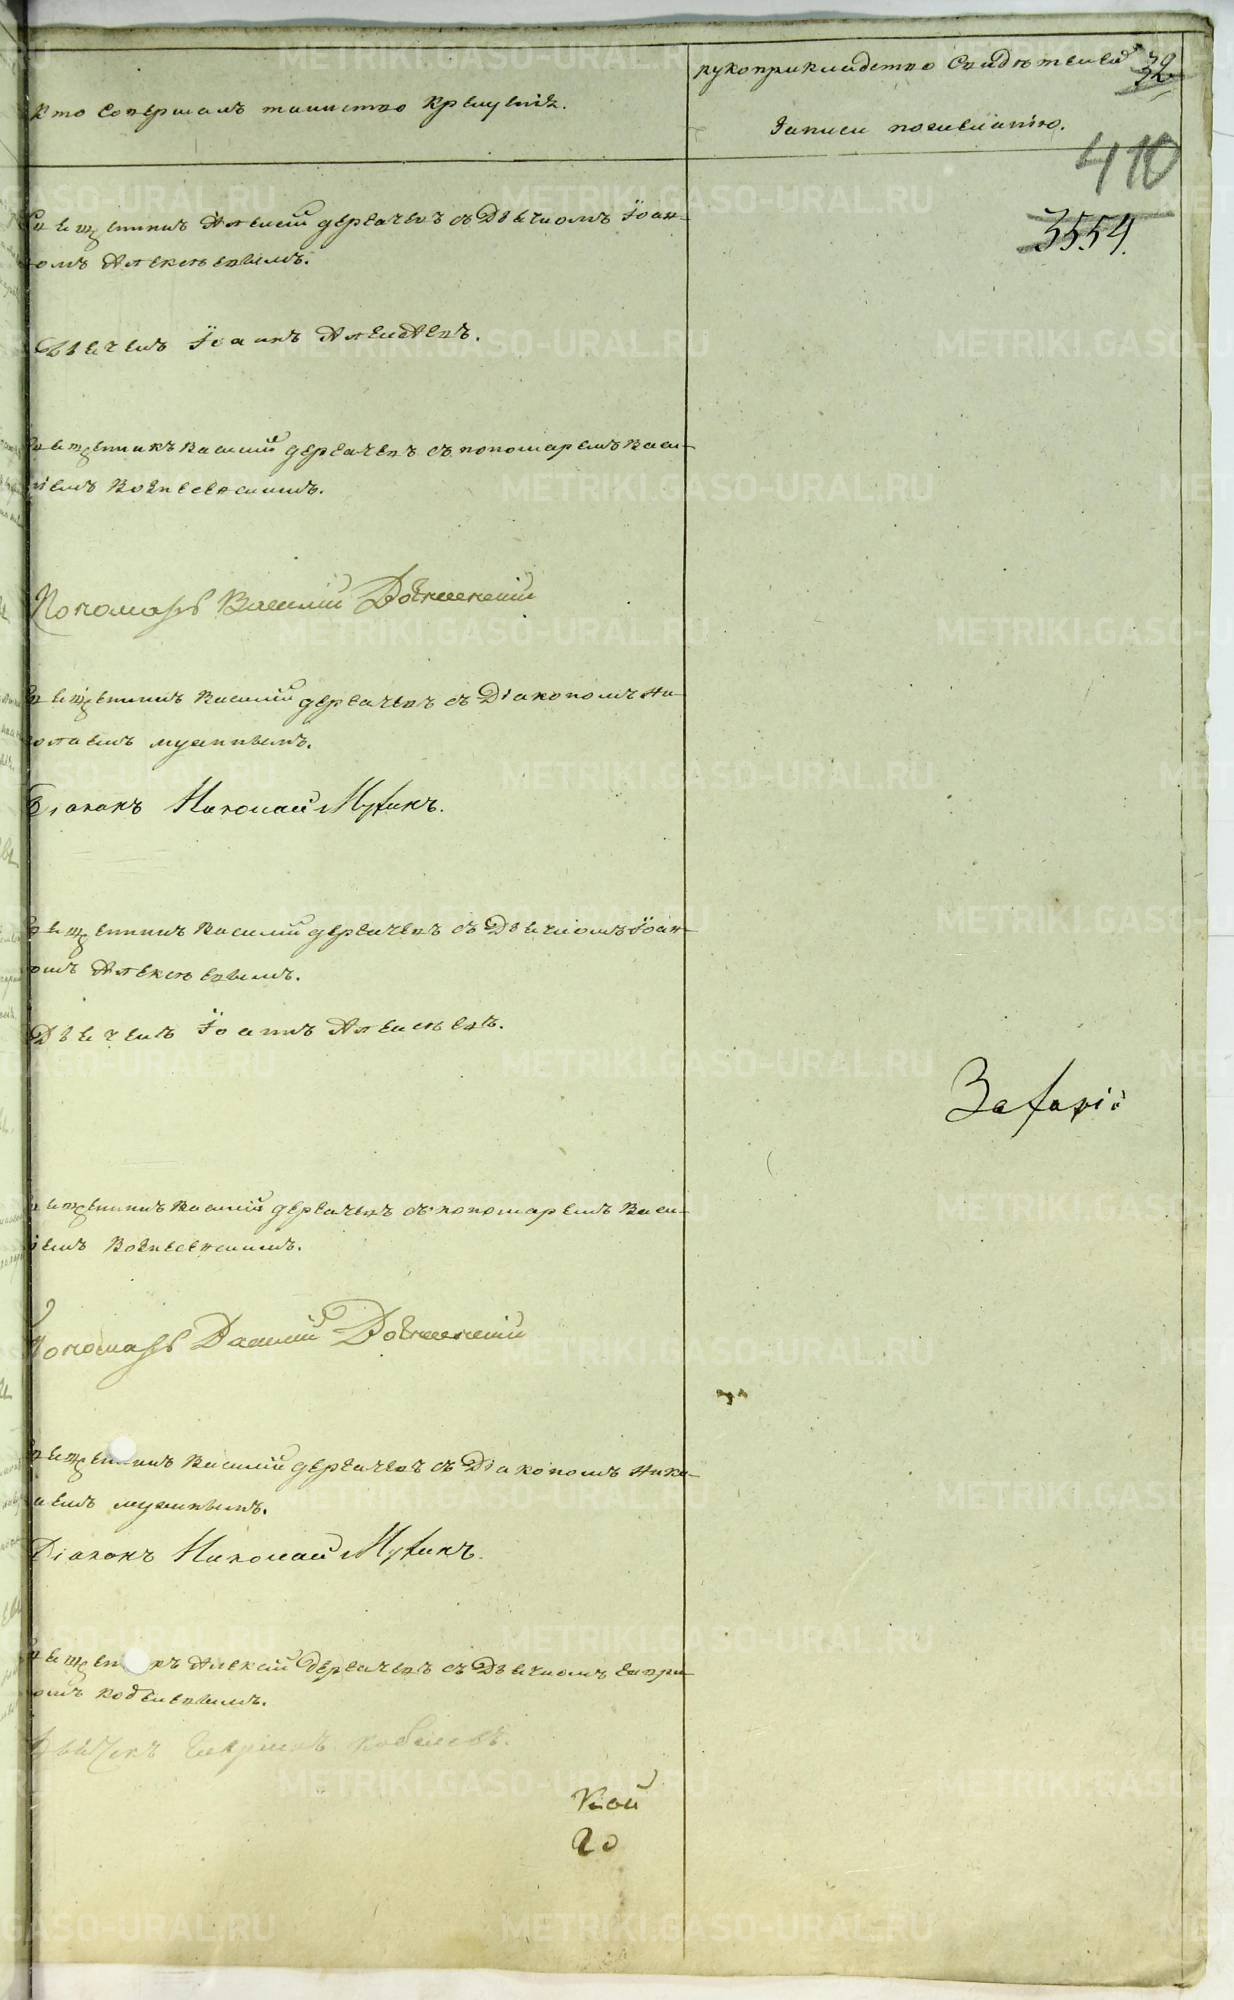 Кто Совершалъ таинство Крещенія.
рукоприкладство Свидѣтелей
записи пожеланію.
32
410
3554.
Священникъ Алексій Дерсачевъ съ Дьячкомъ Іоан-
номъ Алексѣевымъ.
Дьячекъ Іоаннъ Алексѣевъ.
Священникъ Василій Дерсачевъ съ пономаремъ Васи-
ліемъ Вознесенскимъ.
Пономарь Василій Вознесенскій
Священникъ Василій Дерсачевъ съ Діакономъ Ни-
колаемъ Мухинымъ.
Діаконъ Николай Мухинъ.
Священникъ Василій Дерсачевъ съ Дьячкомъ Іоан-
номъ Алексѣевымъ.
Дьячекъ Іоаннъ Алексѣевъ.
Захарій
Священникъ Василій Дерсачевъ съ пономаремъ Васи-
ліемъ Вознесенскимъ.
Пономарь Василій Вознесенскій
Священникъ Василій Дерсачевъ съ Діакономъ Нико-
лаемъ Мухинымъ.
Діаконъ Николай Мухинъ.
Священникъ Алексій Дерсачевъ съ Дьячкомъ
Дьячекъ
20